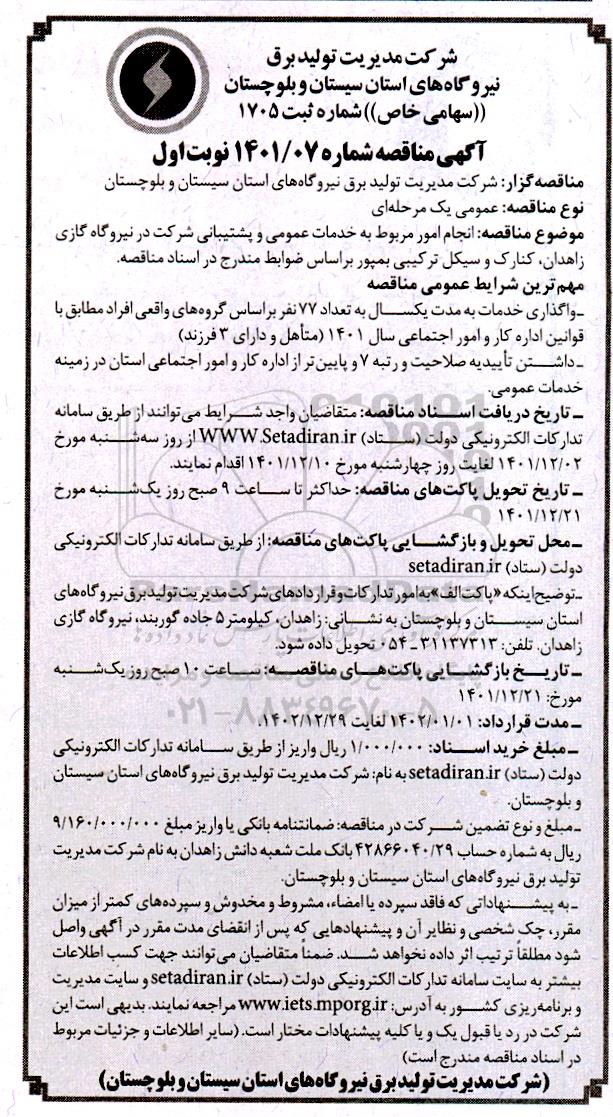 شرکت مدیریت تولید برق
نیروگاه‌های استان سیستان و بلوچستان
((سهامی خاص)) شماره ثبت ۱۷۰۵
آگهی مناقصه شماره ۱۴۰۱/۰۷ نوبت اول
مناقصه‌گزار: شرکت مدیریت تولید برق نیروگاه‌های استان سیستان و بلوچستان
نوع مناقصه: عمومی یک مرحله‌ای
موضوع مناقصه: انجام امور مربوط به خدمات عمومی و پشتیبانی شرکت در نیروگاه گازی
زاهدان، کنارک و سیکل ترکیبی بمپور براساس ضوابط مندرج در اسناد مناقصه.
مهم‌ترین شرایط عمومی مناقصه
ـ واگذاری خدمات به مدت یکسال به تعداد ۷۷ نفر براساس گروه‌های واقعی افراد مطابق با
قوانین اداره کار و امور اجتماعی سال ۱۴۰۱ (متأهل و دارای ۳ فرزند)
ـ داشتن تأییدیه صلاحیت و رتبه ۷ و پایین‌تر از اداره کار و امور اجتماعی استان در زمینه
خدمات عمومی.
ـ تاریخ دریافت اسناد مناقصه: متقاضیان واجد شرایط می‌توانند از طریق سامانه
تدارکات الکترونیکی دولت (ستاد) WWW.Setadiran.ir از روز سه‌شنبه مورخ
۱۴۰۱/۱۲/۰۲ لغایت روز چهارشنبه مورخ ۱۴۰۱/۱۲/۱۰ اقدام نمایند.
ـ تاریخ تحویل پاکت‌های مناقصه: حداکثر تا ساعت ۹ صبح روز یک‌شنبه مورخ
۱۴۰۱/۱۲/۲۱
ـ محل تحویل و بازگشایی پاکت‌های مناقصه: از طریق سامانه تدارکات الکترونیکی
دولت (ستاد) setadiran.ir
ـ توضیح اینکه «پاکت الف» به امور تدارکات و قراردادهای شرکت مدیریت تولید برق نیروگاه‌های
استان سیستان و بلوچستان به نشانی: زاهدان، کیلومتر ۵ جاده گوربند، نیروگاه گازی
زاهدان. تلفن: ۳۱۱۳۷۳۱۳ ـ ۰۵۴ تحویل داده شود.
ـ تاریخ بازگشایی پاکت‌های مناقصه: ساعت ۱۰ صبح روز یک‌شنبه
مورخ: ۱۴۰۱/۱۲/۲۱
۰۲۱-۸۸۳۴۹۶۷۰-۵
ـ مدت قرارداد: ۱۴۰۲/۰۱/۰۱ لغایت ۱۴۰۲/۱۲/۲۹.
ـ مبلغ خرید اسناد: ۱/۰۰۰/۰۰۰ ریال واریز از طریق سامانه تدارکات الکترونیکی
دولت (ستاد) setadiran.ir به نام: شرکت مدیریت تولید برق نیروگاه‌های استان سیستان
و بلوچستان.
ـ مبلغ و نوع تضمین شرکت در مناقصه: ضمانتنامه بانکی یا واریز مبلغ ۹/۱۶۰/۰۰۰/۰۰۰
ریال به شماره حساب ۴۲۸۶۶۰۴۰/۲۹ بانک ملت شعبه دانش زاهدان به نام شرکت مدیریت
تولید برق نیروگاه‌های استان سیستان و بلوچستان.
ـ به پیشنهاداتی که فاقد سپرده یا امضاء، مشروط و مخدوش و سپرده‌های کمتر از میزان
مقرر، چک شخصی و نظایر آن و پیشنهادهایی که پس از انقضای مدت مقرر در آگهی واصل
شود مطلقاً ترتیب اثر داده نخواهد شد. ضمناً متقاضیان می‌توانند جهت کسب اطلاعات
بیشتر به سایت سامانه تدارکات الکترونیکی دولت (ستاد) setadiran.ir و سایت مدیریت
و برنامه‌ریزی کشور به آدرس: www.iets.mporg.ir مراجعه نمایند. بدیهی است این
شرکت در رد یا قبول یک و یا کلیه پیشنهادات مختار است. (سایر اطلاعات و جزئیات مربوط
در اسناد مناقصه مندرج است)
(شرکت مدیریت تولید برق نیروگاه‌های استان سیستان و بلوچستان)